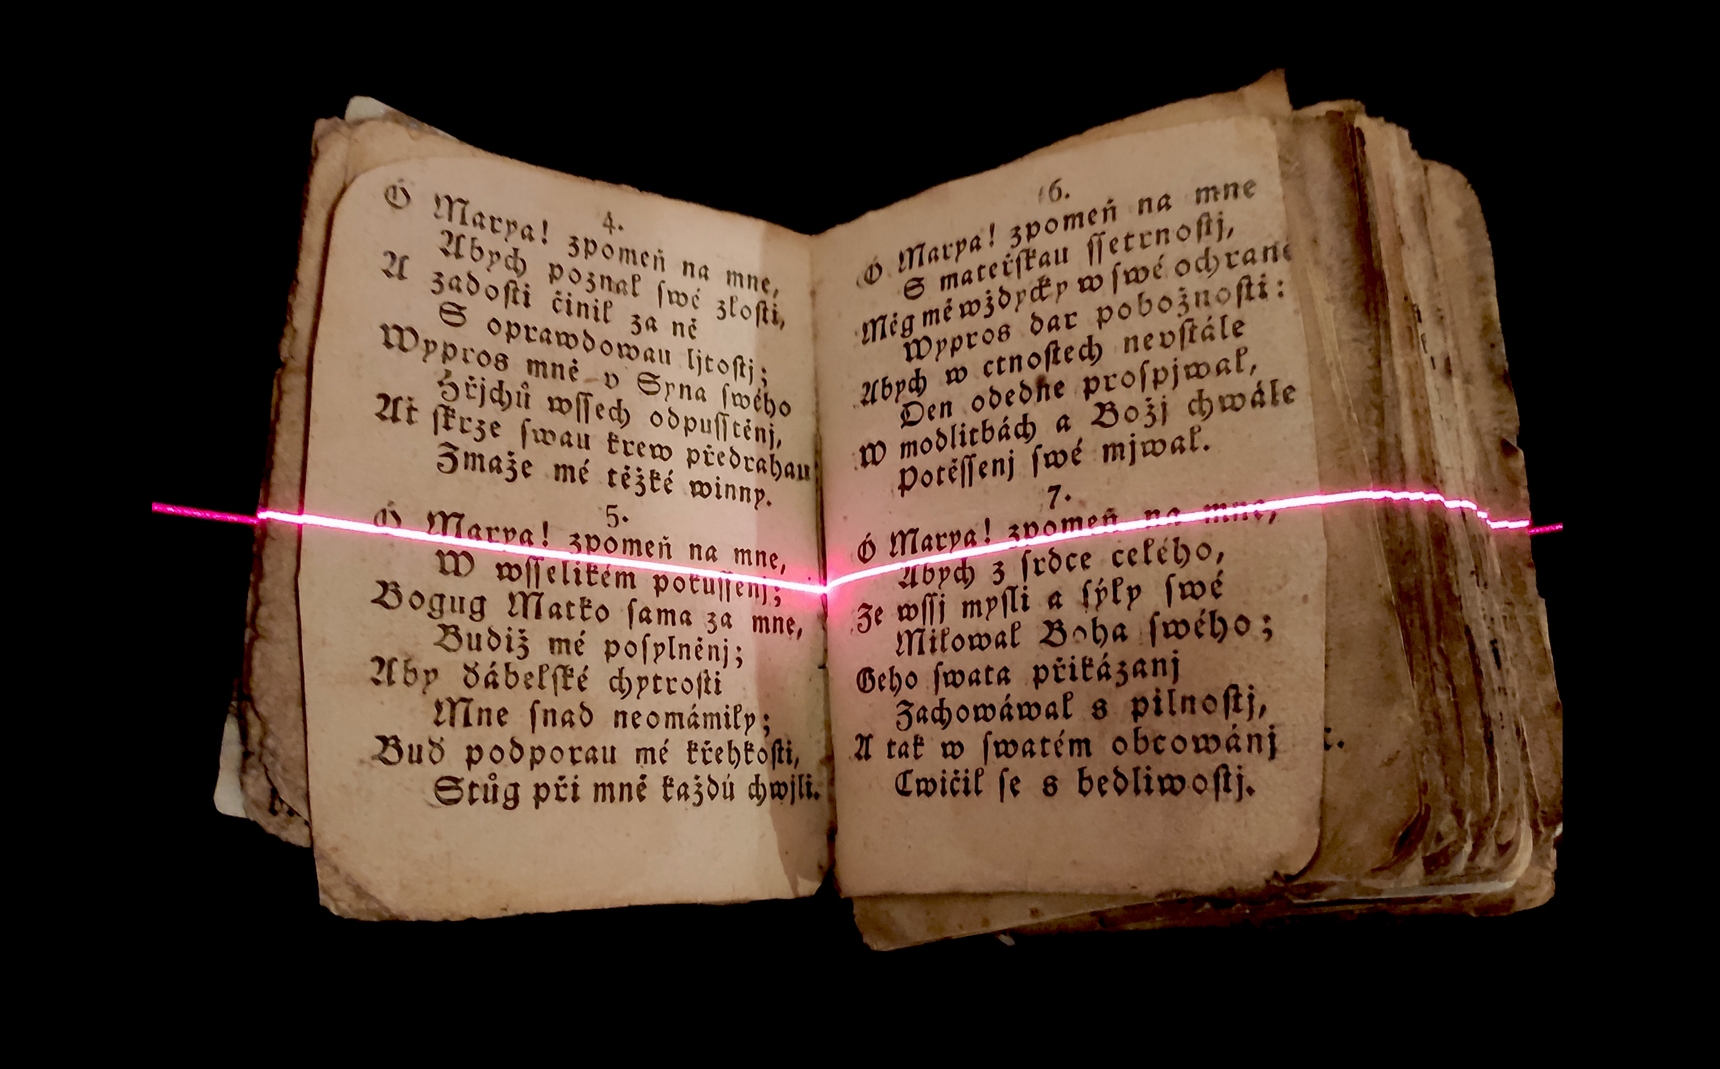 4.
Ó Marya! zpomeň na mne,
Abych poznal ſwé zloſti,
A zadoſti činil za ně
S oprawdowau ljtoſtj;
Wypros mně v Syna ſwého
Hřjchů wſſech odpuſſtěnj,
Ať ſkrze ſwau krew předrahau
Zmaže mé těžké winny.
5.
Ó Marya! zpomeň na mne,
W wſſelikém pokuſſenj;
Bogug Matko ſama za mne,
Budiž mé poſylněnj;
Aby ďábelſké chytroſti
Mne ſnad neomámily;
Buď podporau mé křehkoſti,
Stůg při mně každú chwjli.
6.
Ó Marya! zpomeň na mne
S mateřſkau ſſetrnoſtj,
Měg mě wždycky w ſwé ochraně
Wypros dar pobožnoſti:
Abych w ctnoſtech nevſtále
Den odedňe proſpjwal,
W modlitbách a Božj chwále
Potěſſenj ſwé mjwal.
7.
Ó Marya! zpomeň na mne,
Abych z ſrdce celého,
Ze wſſj myſli a ſýly ſwé
Milowal Boha ſwého;
Geho ſwata přikázanj
Zachowáwal s pilnoſtj,
A tak w ſwatém obcowánj
Cwičil ſe s bedliwoſtj.